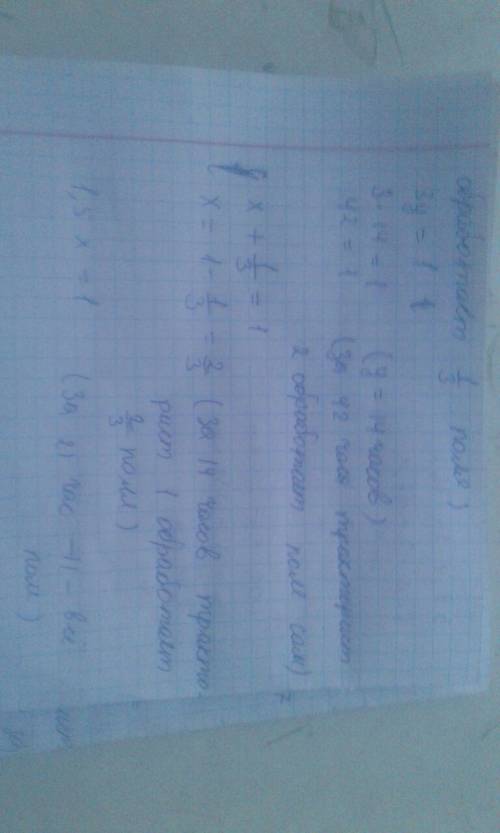 обработает 1/3 поля)
3y = 1
3·14 = 1 (y = 14 часов)
42 = 1 (За 42 часа тракторист
2 обработает поле сам)
x + 1/3 = 1
x = 1 - 1/3 = 2/3 (За 14 часов тракто
рист 1 обработает
2/3 поля)
1,5 x = 1 (За 21 час -//- всё
поле)